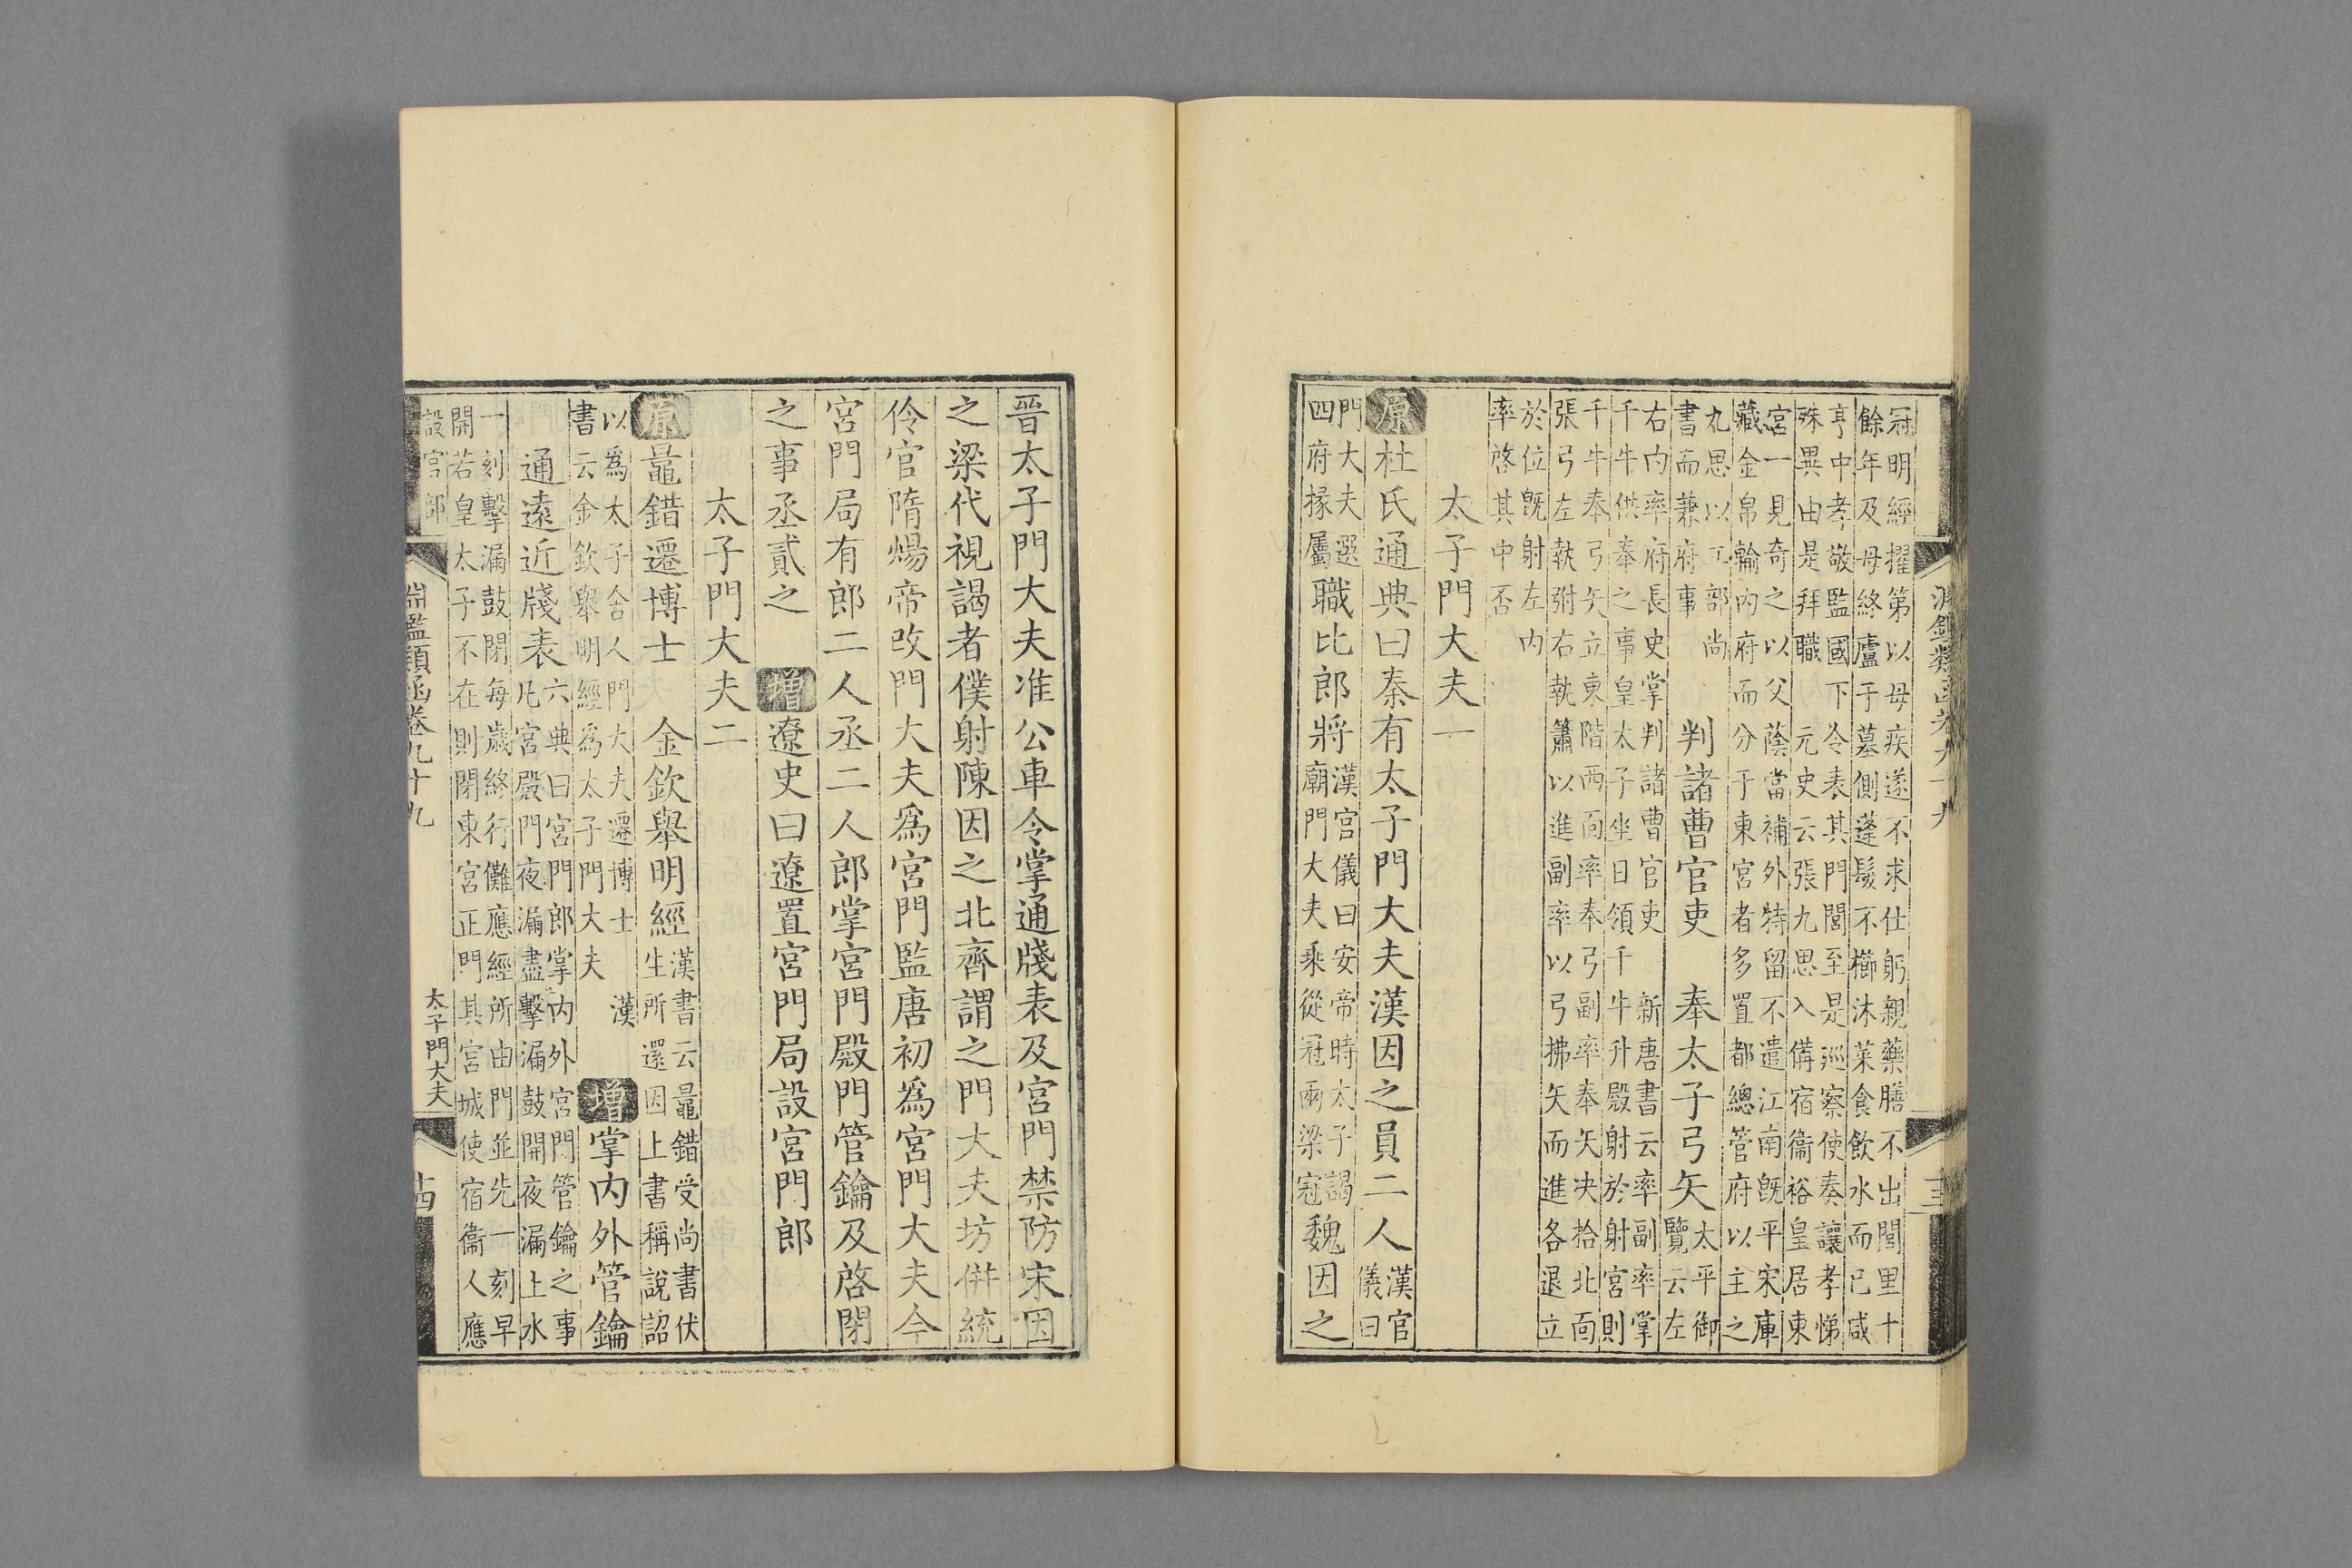 淵鑑類函卷九十九
十三
冠明經擢第以母疾遂不求仕躬親藥膳不出閭里十
餘年及母終廬于墓側蓬髮不櫛沐菜食飲水而已咸
亨中孝敬監國下令表其門閭至是巡察使奏讓孝悌
殊異由是拜職 元史云張九思入備宿衞裕皇居東
宮一見奇之以父蔭當補外特留不遣江南既平宋庫
藏金帛輸內府而分于東宮者多置都總管府以主之
九思以工部尚
書而兼府事
判諸曹官吏 奉太子弓矢
太平御
覽云左
右內率府長史掌判諸曹官吏 新唐書云率副率掌
千牛供奉之事皇太子坐日領千牛升殿射於射宮則
千牛奉弓矢立東階西面率奉弓副率奉矢决拾北面
張弓左執弣右執簫以進副率以弓拂矢而進各退立
於位既射左內
率啓其中否
太子門大夫一
原杜氏通典曰秦有太子門大夫漢因之員二人
漢官
儀曰
門大夫選
四府掾屬
職比郎將
漢官儀曰安帝時太子謁
廟門大夫乘從冠兩梁冠
魏因之
晉太子門大夫准公車令掌通牋表及宮門禁防宋因
之梁代視謁者僕射陳因之北齊謂之門大夫坊併統
伶官隋煬帝改門大夫爲宮門監唐初爲宮門大夫今
宮門局有郎二人丞二人郎掌宮門殿門管鑰及啓閉
之事丞貳之 增遼史曰遼置宮門局設宮門郎
太子門大夫二
原鼂錯遷博士 金欽舉明經
漢書云鼂錯受尚書伏
生所還因上書稱說詔
以爲太子舍人門大夫遷博士 漢
書云金欽舉明經爲太子門大夫
增掌內外管鑰
通遠近牋表
六典曰宮門郎掌內外宮門管鑰之事
凡宮殿門夜漏盡擊漏鼓開夜漏上水
一刻擊漏鼓閉每歲終行儺應經所由門並先一刻早
開若皇太子不在則閉東宮正門其宮城使宿衞人應
設宮郎
淵鑑類函卷九十九
太子門大夫
十四